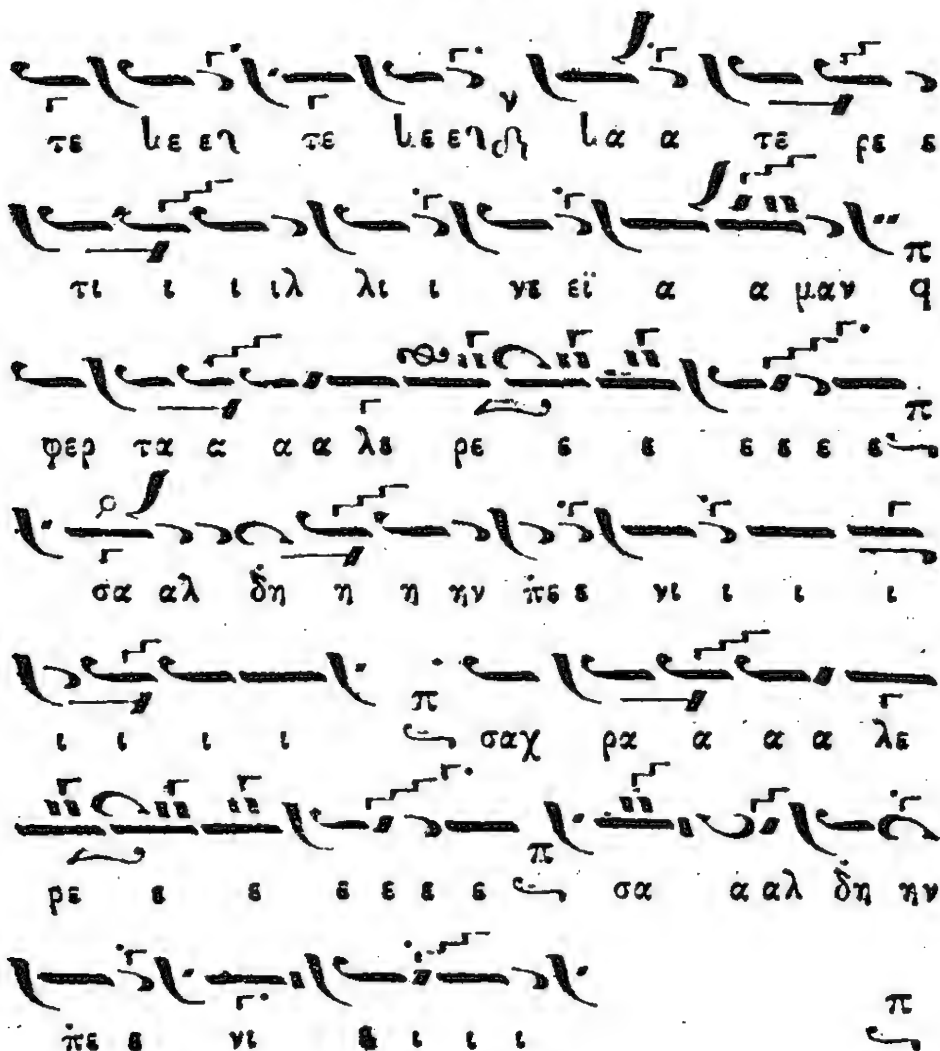 τε ιεεη τε ιεεη ια α τε ρε ε
τι ι ι ιλ λι ι νε εϊ α α μαν π q
φερ τα α α α λε ρε ε ε ε ε ε ε π
σα αλ δ̇η η η ην π̇ε ε νι ι ι ι
ι ι ι ι π σαχ ρα α α α λε
ρε ε ε ε ε ε ε π σα α αλ δ̇η ην
π̇ε ε νι ι ι ι π